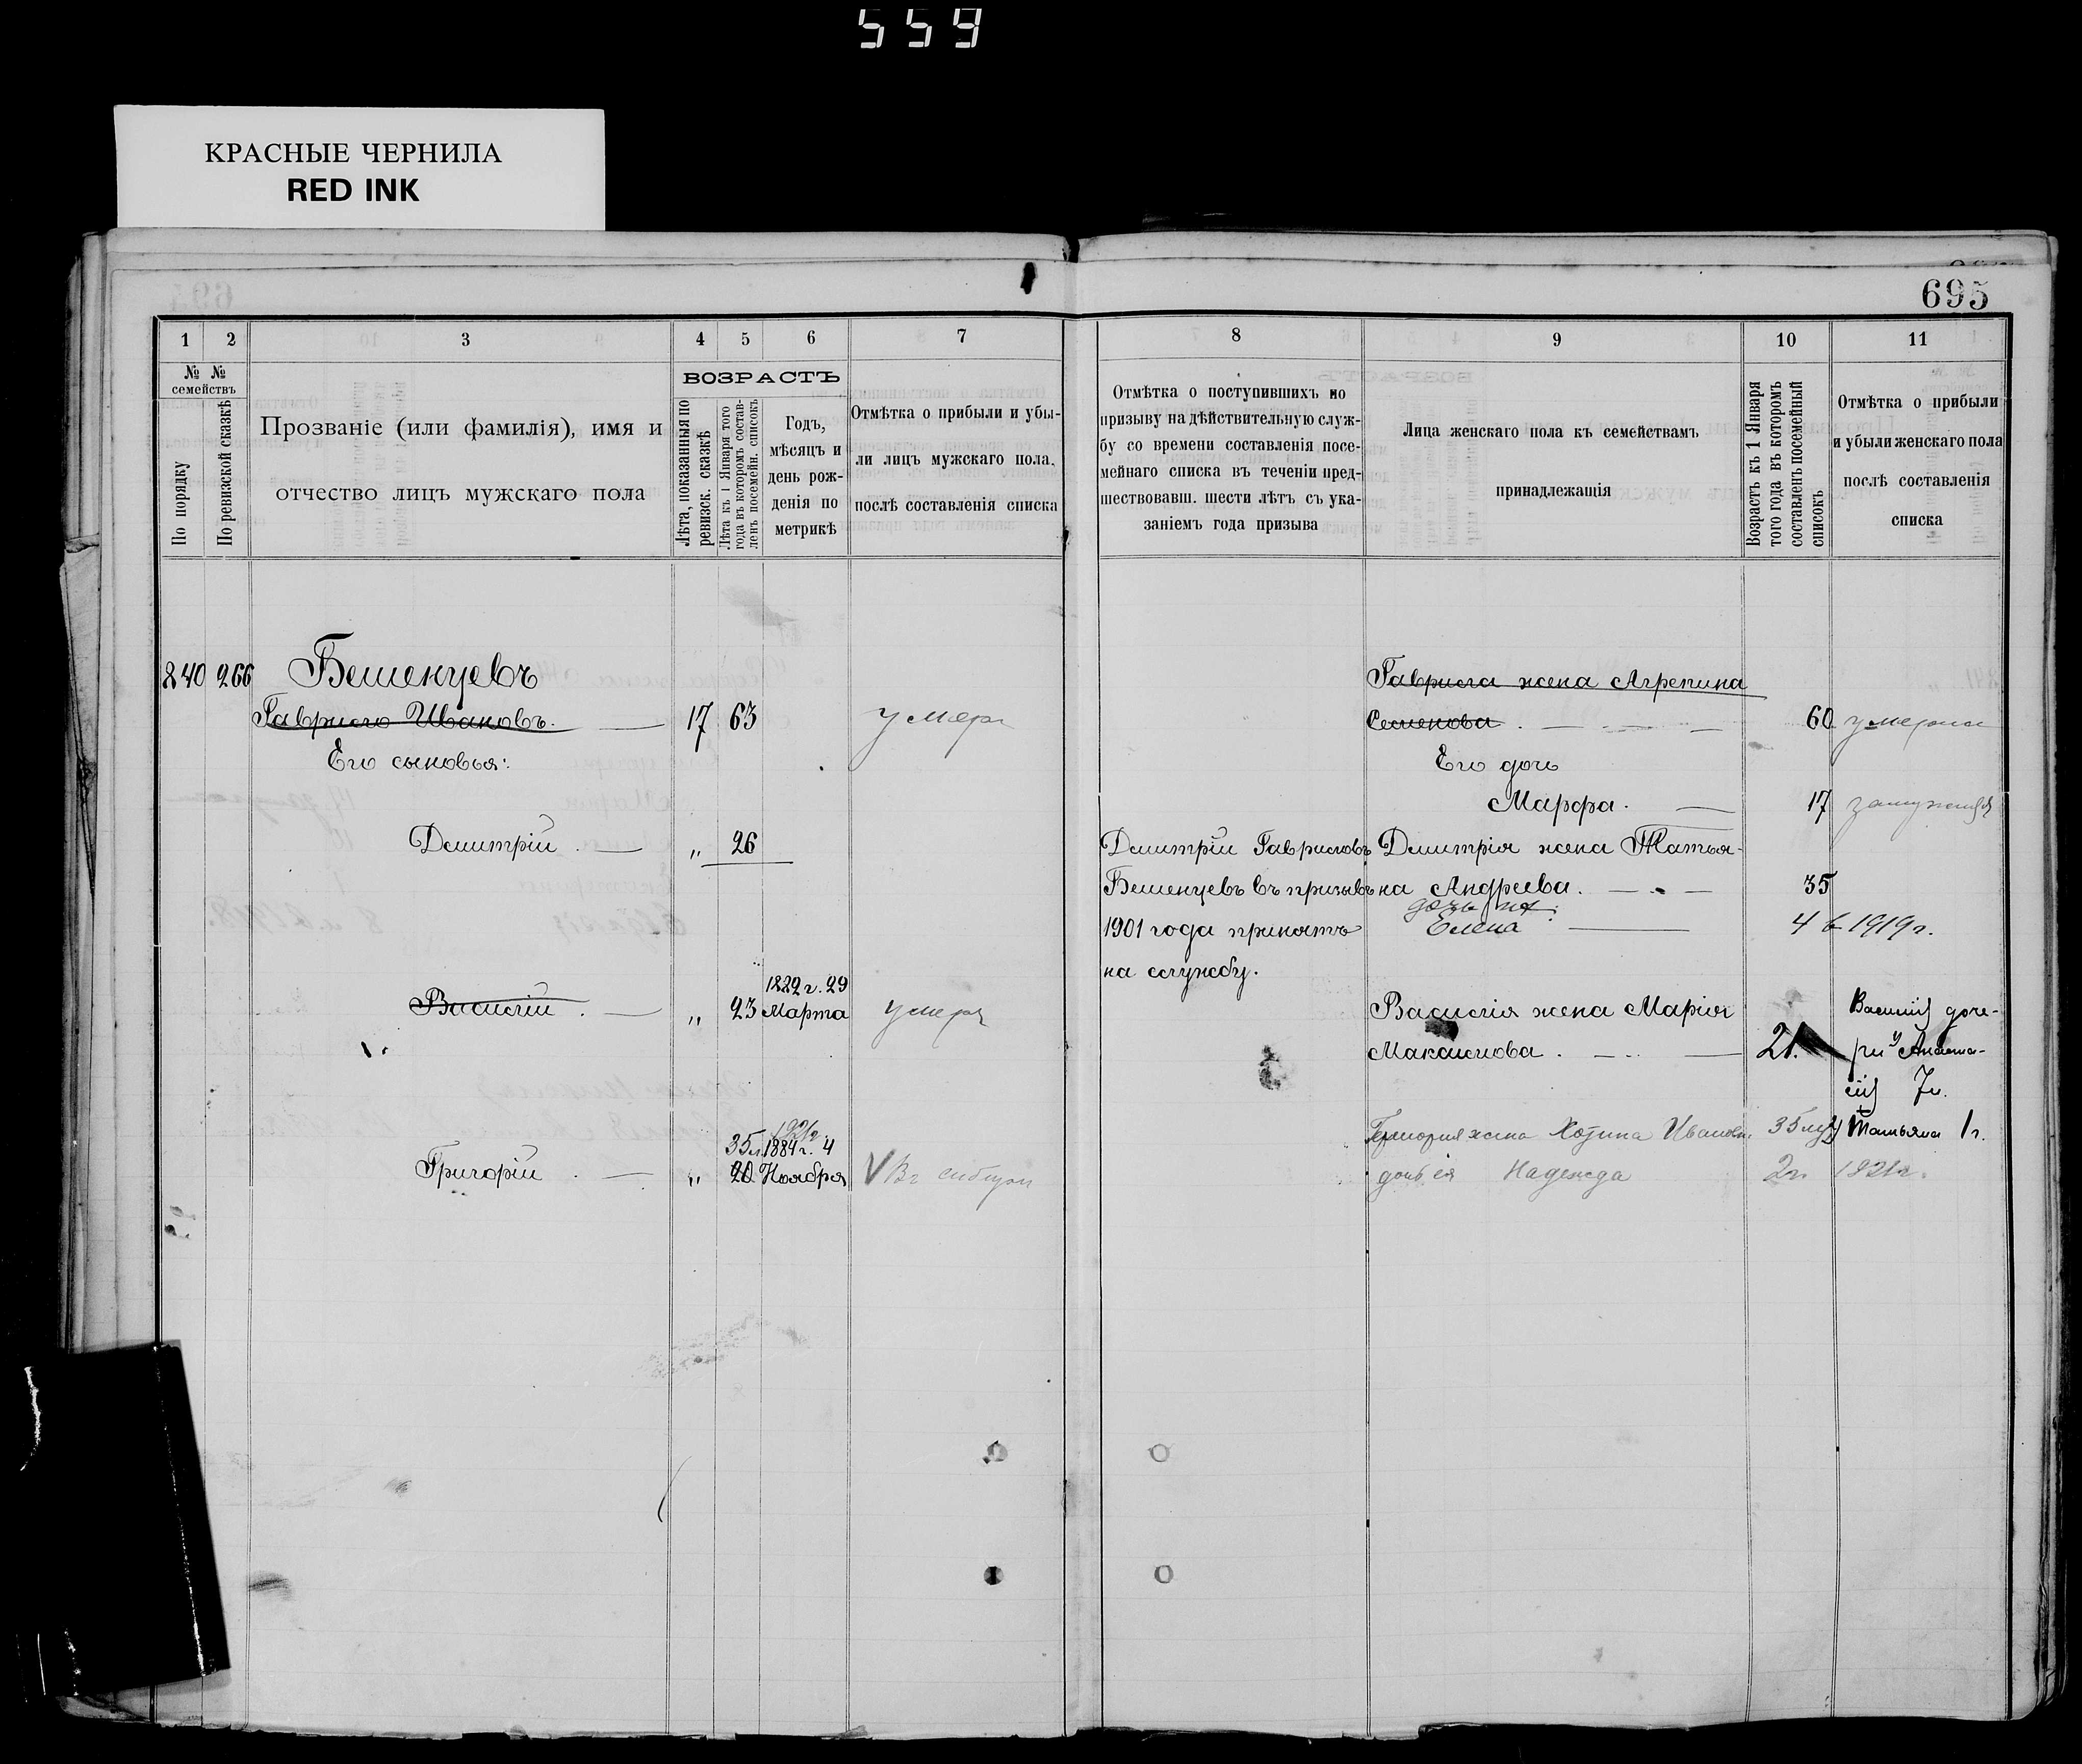 559
КРАСНЫЕ ЧЕРНИЛА
RED INK
695
1 2 3 4 5 6 7 8 9 10 11
№ № семействъ
По порядку
По ревизской сказкѣ
Прозваніе (или фамилія), имя и
отчество лицъ мужскаго пола
ВОЗРАСТЪ
Лѣта, показанныя по
ревизск. сказкѣ
Лѣта къ 1 Января того
года въ которомъ состав-
ленъ посемейн. списокъ
Годъ,
мѣсяцъ и
день рож-
денія по
метрикѣ
Отмѣтка о прибыли и убы-
ли лицъ мужскаго пола,
послѣ составленія списка
Отмѣтка о поступившихъ по
призыву на дѣйствительную служ-
бу со времени составленія посе-
мейнаго списка въ теченіи пред-
шествовавш. шести лѣтъ съ ука-
заніемъ года призыва
Лица женскаго пола къ семействамъ
принадлежащія
Возрастъ къ 1 Января
того года въ которомъ
составленъ посемейный
списокъ
Отмѣтка о прибыли
и убыли женскаго пола
послѣ составленія
списка
240 266 Бешенцевъ
Гаврило Ивановъ. 17 63 умеръ
Его сыновья:
Дмитрій . „ 26
1882 г. 29
Василій . „ 23 Марта умеръ
1921г.
35 л. 1884 г. 4
Григорій . „ 20 Ноября V Въ
Дмитрій Гавриловъ
Бешенцевъ въ призывъ
1901 года принятъ
на службу.
Гаврила жена Агрепина
Семенова . 60 умерла
Его дочь
Марфа. 17 замужемъ
Дмитрія жена Татья-
на Андреева. 35
дочь их:
Елена 4 в 1919 г.
Василія жена Марія
Макаимова . 21.
Василій доче-
ри Анаста-
сій 7 л.
Татьяна 1 г.
Григория жена Ивановна 35 лѣт
дочь ея Надежда 2 г. 1921г.